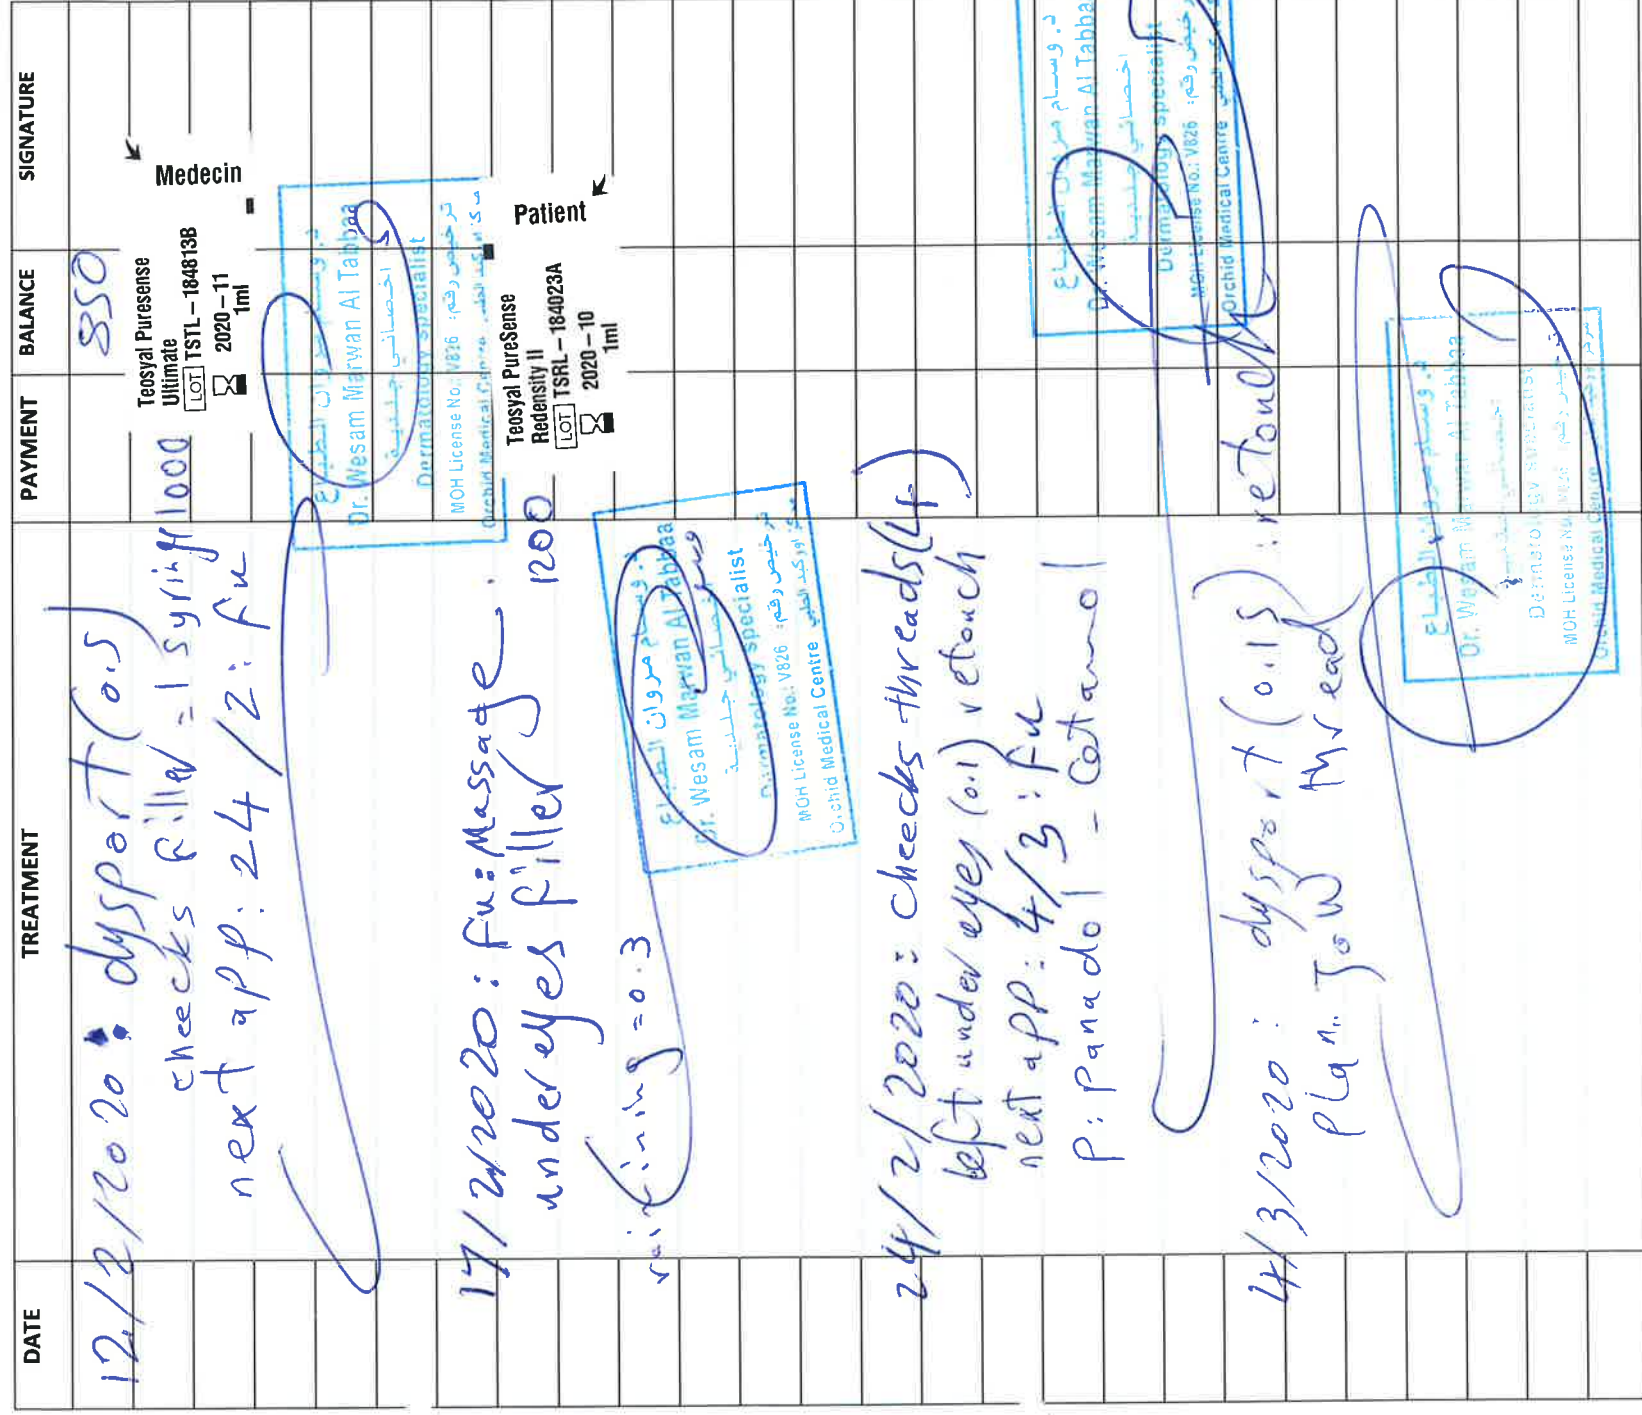 DATE TREATMENT PAYMENT BALANCE SIGNATURE
12/2/2020: dysport (0.5) 850
cheecks filler = 1 syringe 1000
next app: 24/2: fu
Teosyal Puresense
Ultimate
LOT TSTL-184813B
2020-11
1ml
Medecin
د. وسام مروان الطباع
Dr. Wesam Marwan Al Tabbaa
اخصائي جلدية
Dermatology specialist
MOH License No.: V826 ترخيص رقم:
Orchid Medical Centre
17/2/2020: fu: Massage.
under eyes filler 1200
remaining = 0.3
Teosyal PureSense
Redensity II
LOT TSRL-184023A
2020-10
1ml
Patient
د. وسام مروان الطباع
Dr. Wesam Marwan Al Tabbaa
اخصائي جلدية
Dermatology specialist
MOH License No.: V826 ترخيص رقم:
Orchid Medical Centre مركز اوركيد الطبي
24/2/2020: cheecks threads (4)
left under eyes (0.1) retouch
next app: 4/3: fu
P: Panadol - Cetamol
د. وسام مروان الطباع
Dr. Wesam Marwan Al Tabba
اخصائي جلدية
Dermatology specialist
MOH License No.: V826 ترخيص رقم:
Orchid Medical Centre
4/3/2020: dysport (0.15): retouch
plan: Jow thread
د. وسام مروان الطباع
Dr. Wesam Marwan Al Tabbaa
Dermatology specialist
MOH License No.
Orchid Medical Centre